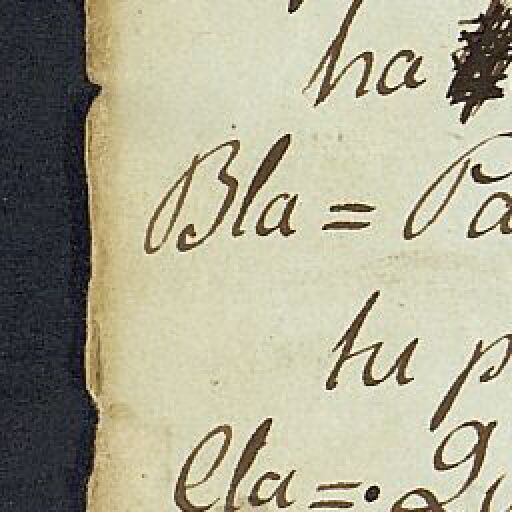 ha
Bla = Pa
tu p
Cla =. Qu